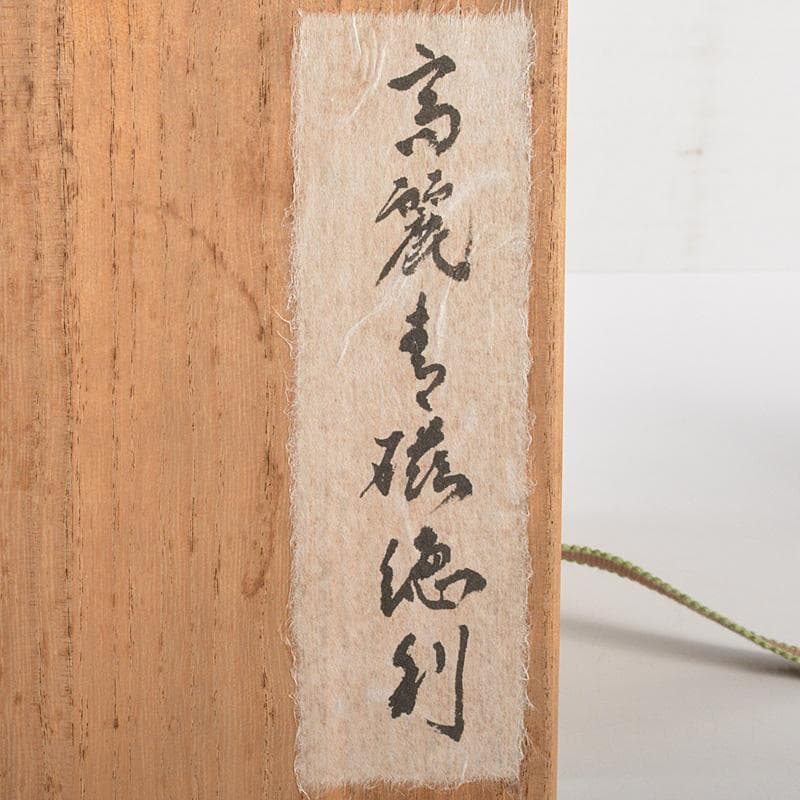 高麗青磁徳利